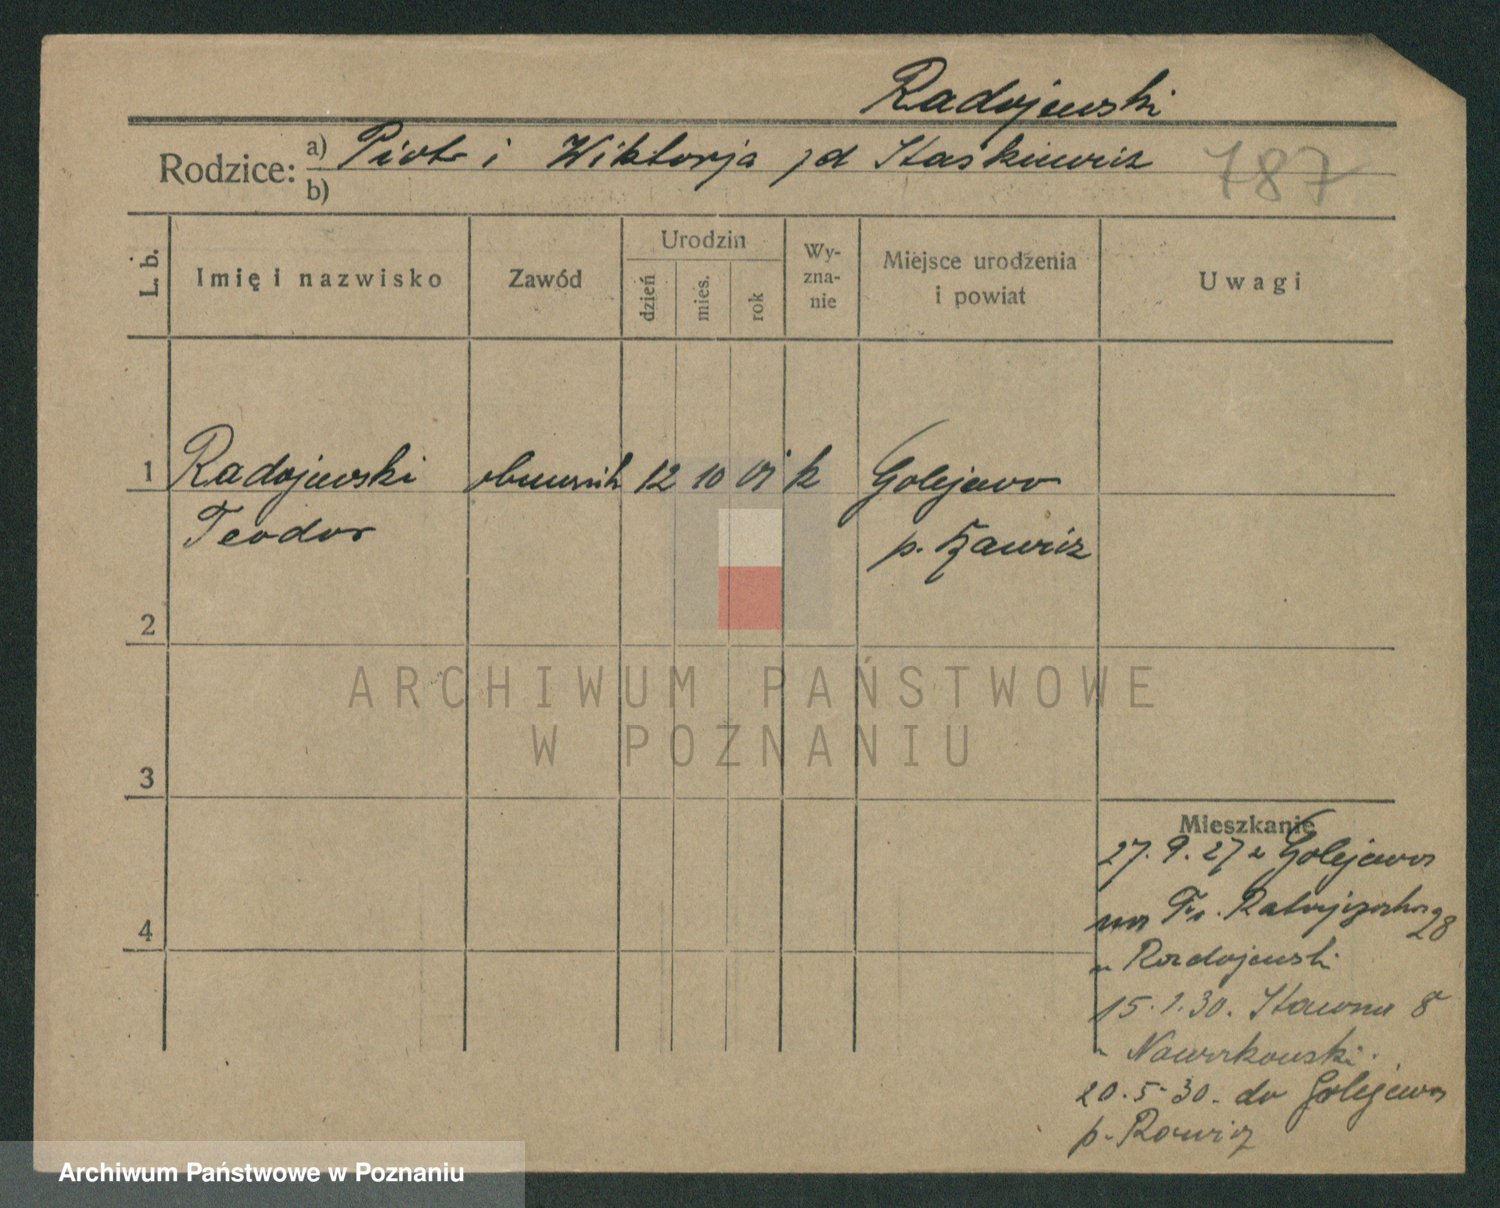 Radojewski
Rodzice: a) Piotr i Wiktorja zd Staskiewicz 787
b)
L. b. Imię i nazwisko Zawód Urodzin dzień mies. rok Wyznanie Miejsce urodzenia i powiat Uwagi
1 Radojewski 12 10 01 k Golejewo
Teodor p. Rawicz
2
3
4
Mieszkanie
27. 9. 27 z Golejewa
Fr. Ratajczaka 28
u Radojewski
15.1.30. Stawna 8
u Nawrkowski.
20.5.30. do Golejewa
p. Rawicz
ARCHIWUM PAŃSTWOWE
W POZNANIU
Archiwum Państwowe w Poznaniu